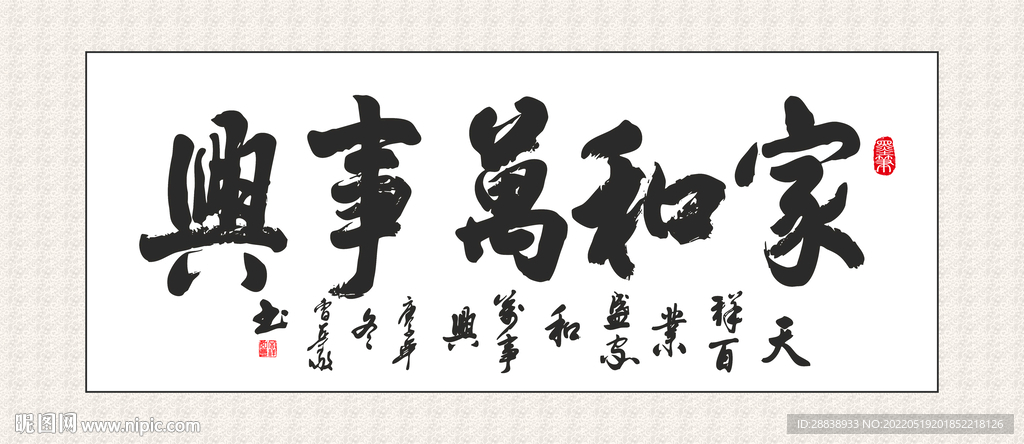 家和萬事興
天
祥百
業
盛家
和
萬事
興
庚子年
冬
书
昵图网 www.nipic.com
ID:28838933 NO:20220519201852218126